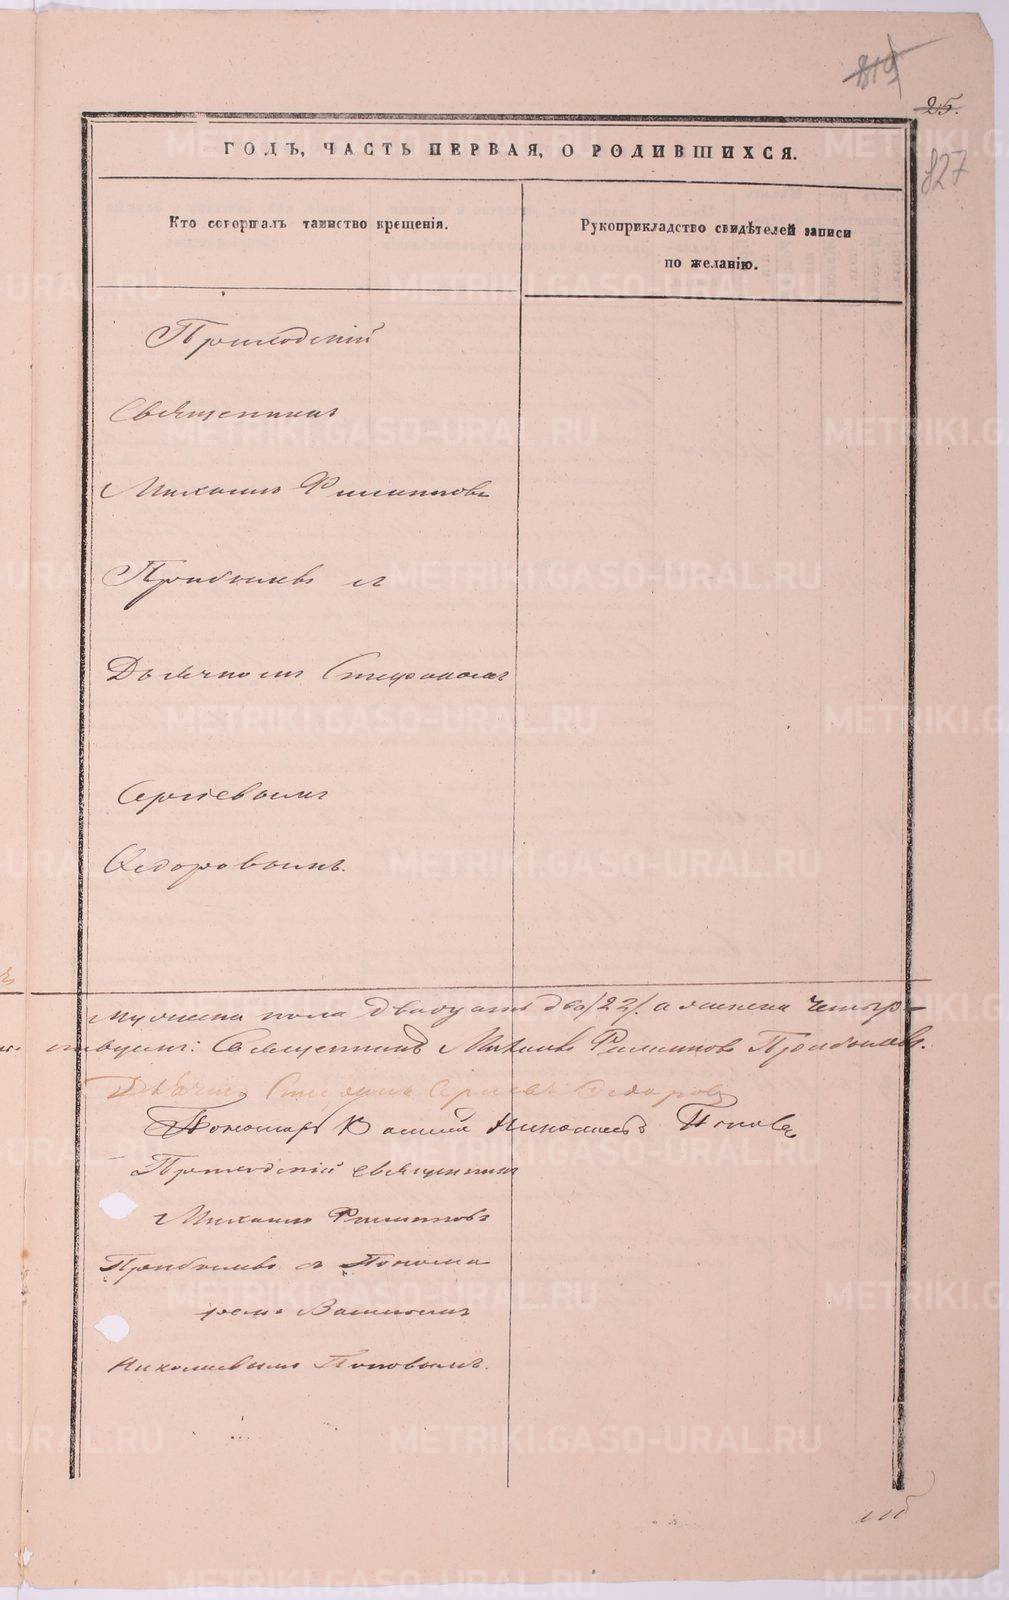 819
25.
827
ГОДЪ, ЧАСТЬ ПЕРВАЯ, О РОДИВШИХСЯ.
Кто совершалъ таинство крещенія.
Рукоприкладство свидѣтелей записи
по желанію.
Приходскій
Священникъ
Михаилъ Филиповъ
Прибылевъ съ
Дьячкомъ Стефаномъ
Сергіевымъ
Ѳедоровымъ.
Мужеска пола двадцать два /22/. а женска четыр-
Священникъ Михаилъ Филиповъ Прибылевъ.
Дьячекъ Стефанъ Сергіевъ Ѳедоровъ
Пономарь Василій Николаевъ Поповъ
Приходскій священникъ
Михаилъ Филиповъ
Прибылевъ съ Понома
ремъ Василіемъ
Николаевымъ Поповымъ.
METRIKI.GASO-URAL.RU